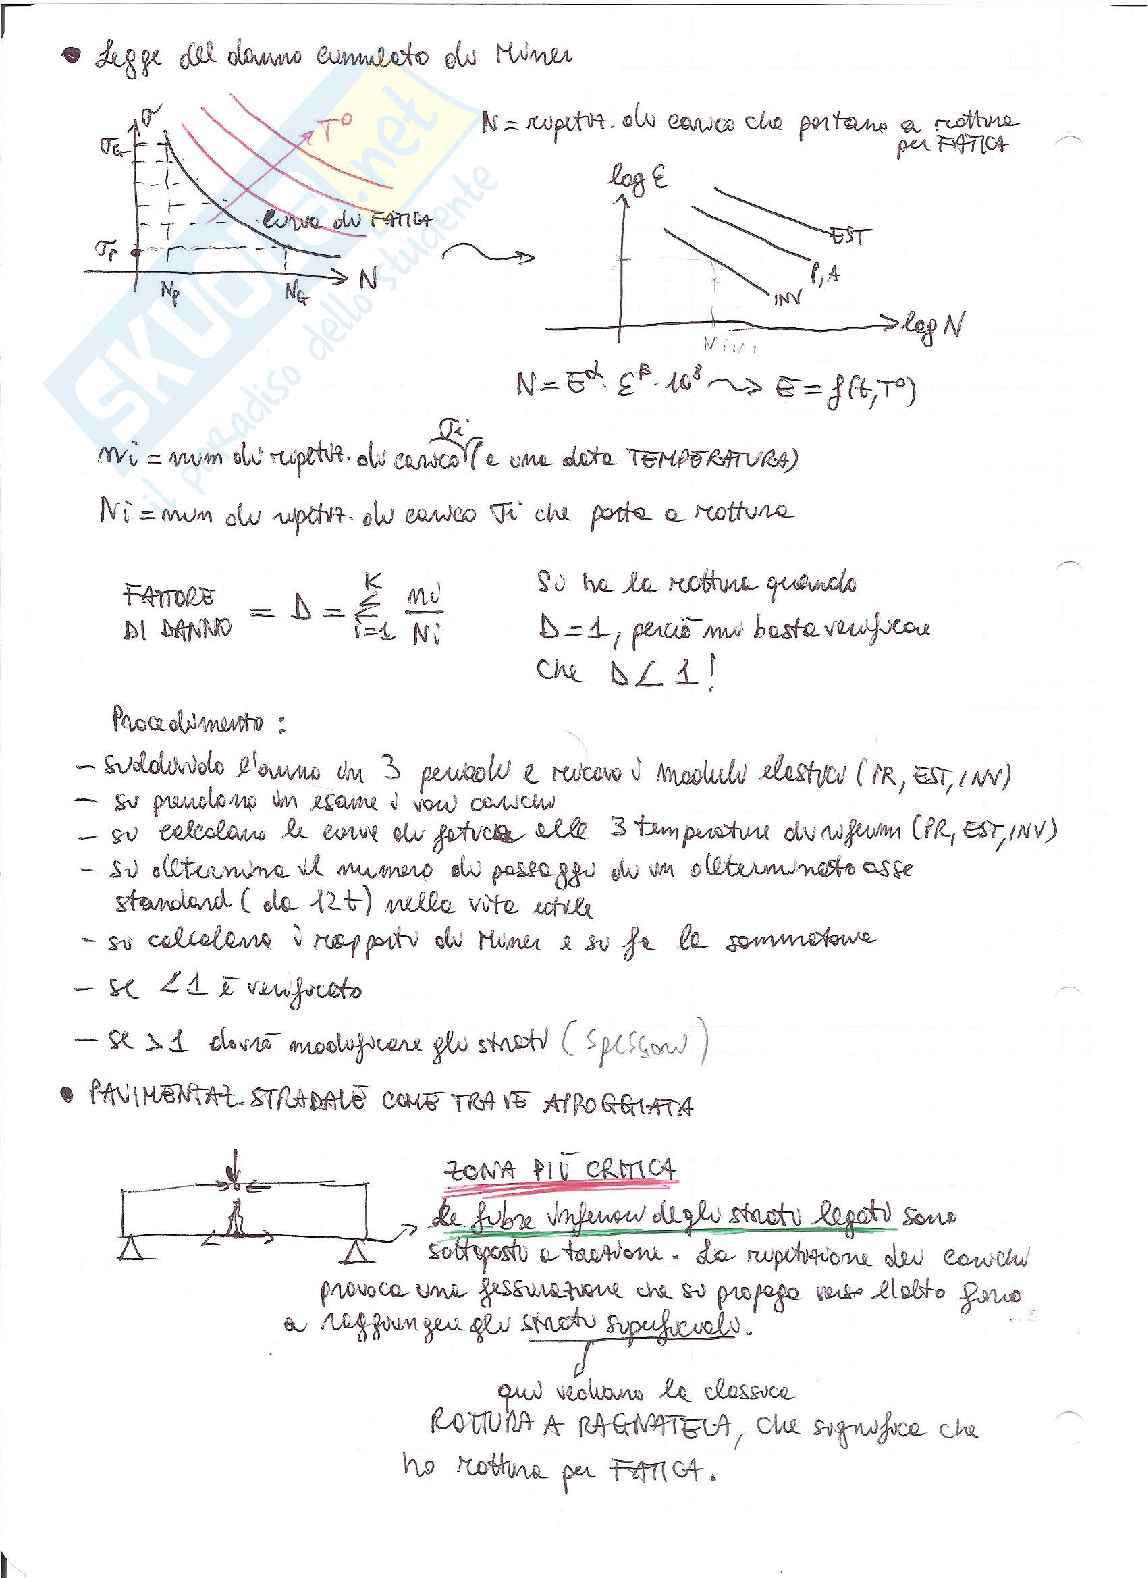 • Legge del danno cumulato di Miner
σ
T°
N = ripetiz. di carico che portano a rottura
per FATICA
σG
curva di FATICA
σP
NP
NG
N
log ε
EST
P, A
INV
log N
N = E^α · ε^β · 10^γ ⇝ E = f(t, T°)
σi
ni = num di ripetiz. di carico (a una data TEMPERATURA)
Ni = num di ripetiz. di carico σi che porta a rottura
FATTORE
DI DANNO
= D = Σ ni/Ni
K
i=1
Si ha la rottura quando
D = 1, perciò mi basta verificare
che D < 1!
Procedimento:
- suddivido l'anno in 3 periodi e ricavo i moduli elastici (PR, EST, INV)
- si prendono in esame i vari carichi
- si calcolano le curve di fatica alle 3 temperature di riferim (PR, EST, INV)
- si determina il numero di passaggi di un determinato asse
standard (da 12t) nella vita utile
- si calcolano i rapporti di Miner e si fa la sommatoria
- se < 1 è verificato
- se > 1 dovrò modificare gli strati (spessori)
• PAVIMENTAZ. STRADALE COME TRAVE APPOGGIATA
ZONA PIÙ CRITICA
Le fibre inferiori degli strati legati sono
sottoposti a trazione. La ripetizione dei carichi
provoca una fessurazione che si propaga verso l'alto fino
a raggiungere gli strati superficiali.
qui vediamo la classica
ROTTURA A RAGNATELA, che significa che
ho rottura per FATICA.
SKUOLA.net
il paradiso dello studente